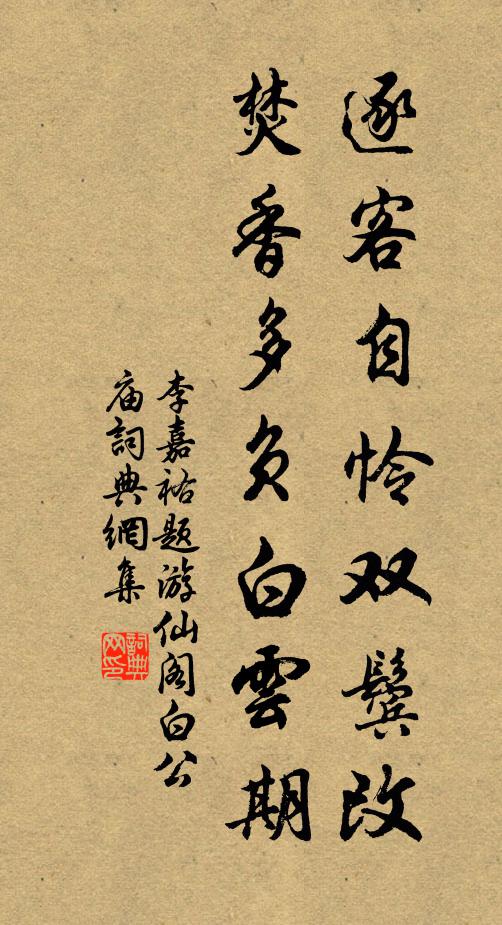 逐客自怜双鬓改
焚香多负白雲期
李嘉祐题游仙阁白公
庙詞典網集
詞典
网印